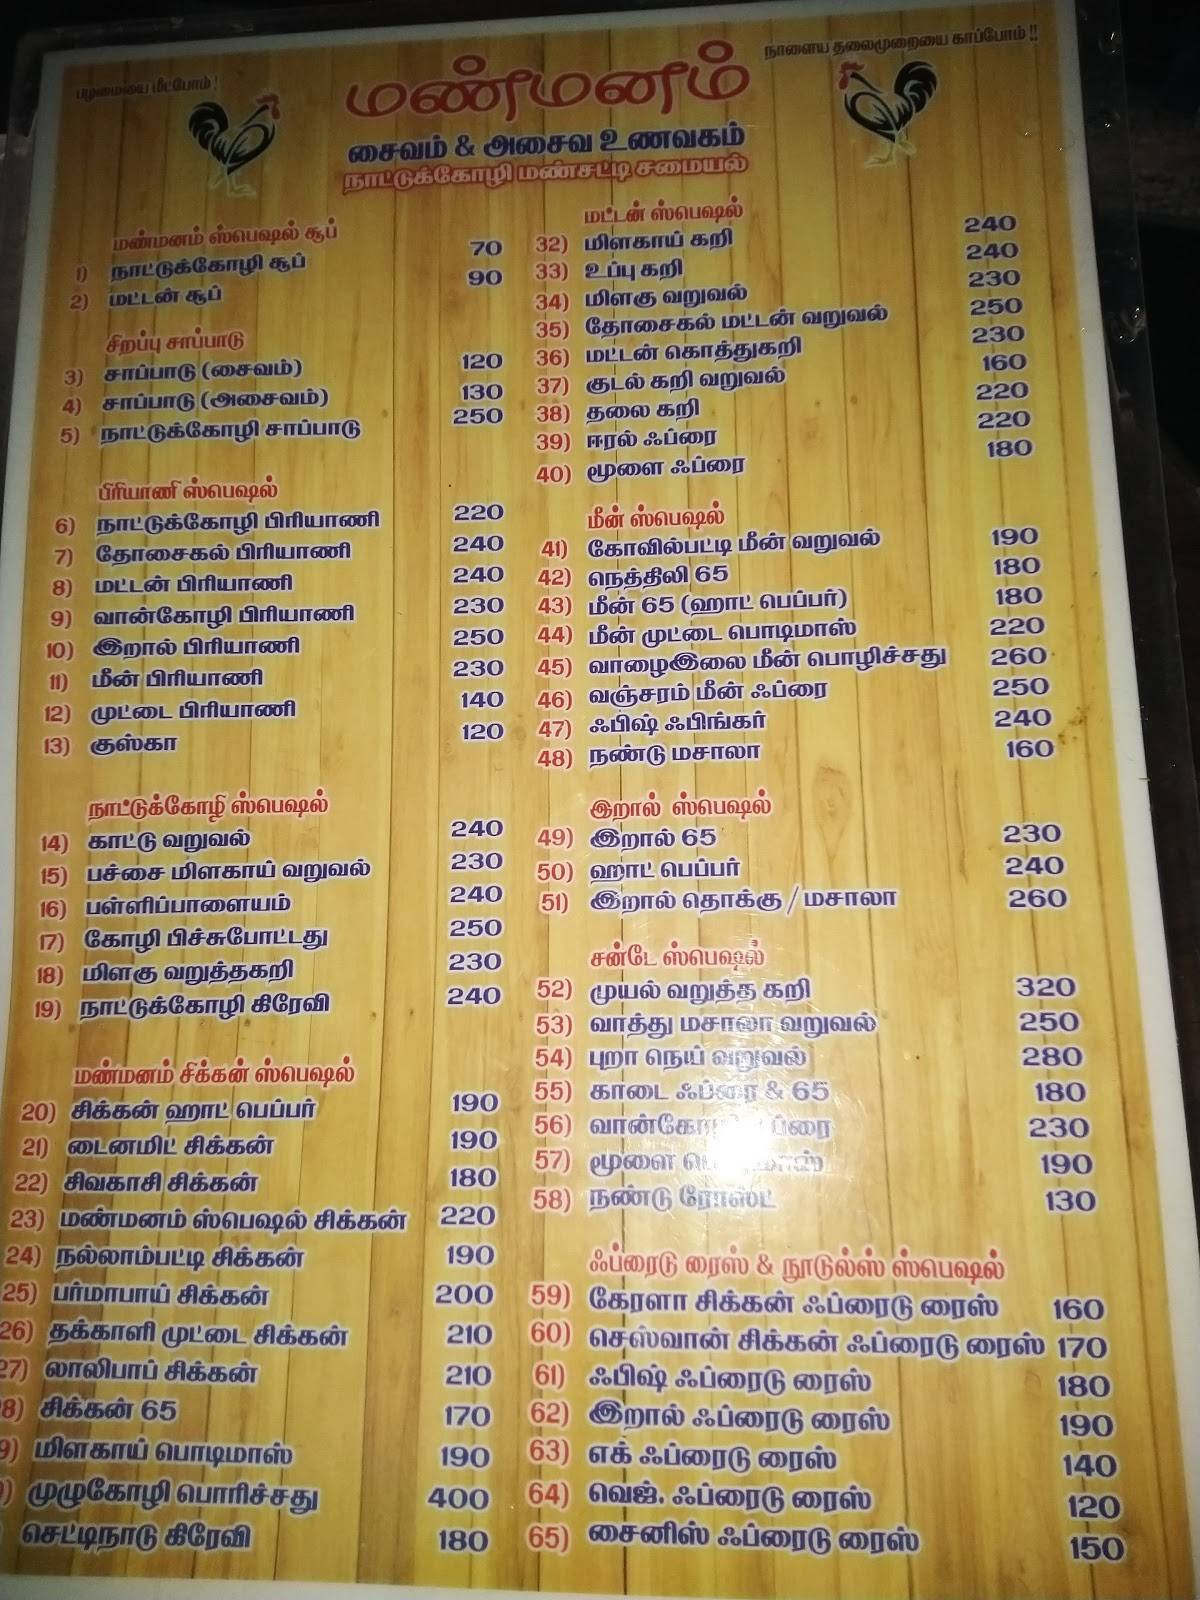 பழமையை மீட்போம் !
நாளைய தலைமுறையை காப்போம் !!
மண்மனம்
சைவம் & அசைவ உணவகம்
நாட்டுக்கோழி மண்சட்டி சமையல்
மண்மனம் ஸ்பெஷல் சூப்
1) நாட்டுக்கோழி சூப் 70
2) மட்டன் சூப் 90
சிறப்பு சாப்பாடு
3) சாப்பாடு (சைவம்) 120
4) சாப்பாடு (அசைவம்) 130
5) நாட்டுக்கோழி சாப்பாடு 250
பிரியாணி ஸ்பெஷல்
6) நாட்டுக்கோழி பிரியாணி 220
7) தோசைகல் பிரியாணி 240
8) மட்டன் பிரியாணி 240
9) வான்கோழி பிரியாணி 230
10) இறால் பிரியாணி 250
11) மீன் பிரியாணி 230
12) முட்டை பிரியாணி 140
13) குஸ்கா 120
நாட்டுக்கோழி ஸ்பெஷல்
14) காட்டு வறுவல் 240
15) பச்சை மிளகாய் வறுவல் 230
16) பள்ளிப்பாளையம் 240
17) கோழி பிச்சுபோட்டது 250
18) மிளகு வறுத்தகறி 230
19) நாட்டுக்கோழி கிரேவி 240
மண்மனம் சிக்கன் ஸ்பெஷல்
20) சிக்கன் ஹாட் பெப்பர் 190
21) டைனமிட் சிக்கன் 190
22) சிவகாசி சிக்கன் 180
23) மண்மனம் ஸ்பெஷல் சிக்கன் 220
24) நல்லாம்பட்டி சிக்கன் 190
25) பர்மாபாய் சிக்கன் 200
26) தக்காளி முட்டை சிக்கன் 210
27) லாலிபாப் சிக்கன் 210
8) சிக்கன் 65 170
9) மிளகாய் பொடிமாஸ் 190
) முழுகோழி பொரிச்சது 400
செட்டிநாடு கிரேவி 180
மட்டன் ஸ்பெஷல்
32) மிளகாய் கறி 240
33) உப்பு கறி 240
34) மிளகு வறுவல் 230
35) தோசைகல் மட்டன் வறுவல் 250
36) மட்டன் கொத்துகறி 230
37) குடல் கறி வறுவல் 160
38) தலை கறி 220
39) ஈரல் ஃப்ரை 220
40) மூளை ஃப்ரை 180
மீன் ஸ்பெஷல்
41) கோவில்பட்டி மீன் வறுவல் 190
42) நெத்திலி 65 180
43) மீன் 65 (ஹாட் பெப்பர்) 180
44) மீன் முட்டை பொடிமாஸ் 220
45) வாழைஇலை மீன் பொழிச்சது 260
46) வஞ்சரம் மீன் ஃப்ரை 250
47) ஃபிஷ் ஃபிங்கர் 240
48) நண்டு மசாலா 160
இறால் ஸ்பெஷல்
49) இறால் 65 230
50) ஹாட் பெப்பர் 240
51) இறால் தொக்கு / மசாலா 260
சன்டே ஸ்பெஷல்
52) முயல் வறுத்த கறி 320
53) வாத்து மசாலா வறுவல் 250
54) புறா நெய் வறுவல் 280
55) காடை ஃப்ரை & 65 180
56) வான்கோழி ஃப்ரை 230
57) மூளை பொடிமாஸ் 190
58) நண்டு ரோஸ்ட் 130
ஃப்ரைடு ரைஸ் & நூடுல்ஸ் ஸ்பெஷல்
59) கேரளா சிக்கன் ஃப்ரைடு ரைஸ் 160
60) செஸ்வான் சிக்கன் ஃப்ரைடு ரைஸ் 170
61) ஃபிஷ் ஃப்ரைடு ரைஸ் 180
62) இறால் ஃப்ரைடு ரைஸ் 190
63) எக் ஃப்ரைடு ரைஸ் 140
64) வெஜ். ஃப்ரைடு ரைஸ் 120
65) சைனிஸ் ஃப்ரைடு ரைஸ் 150